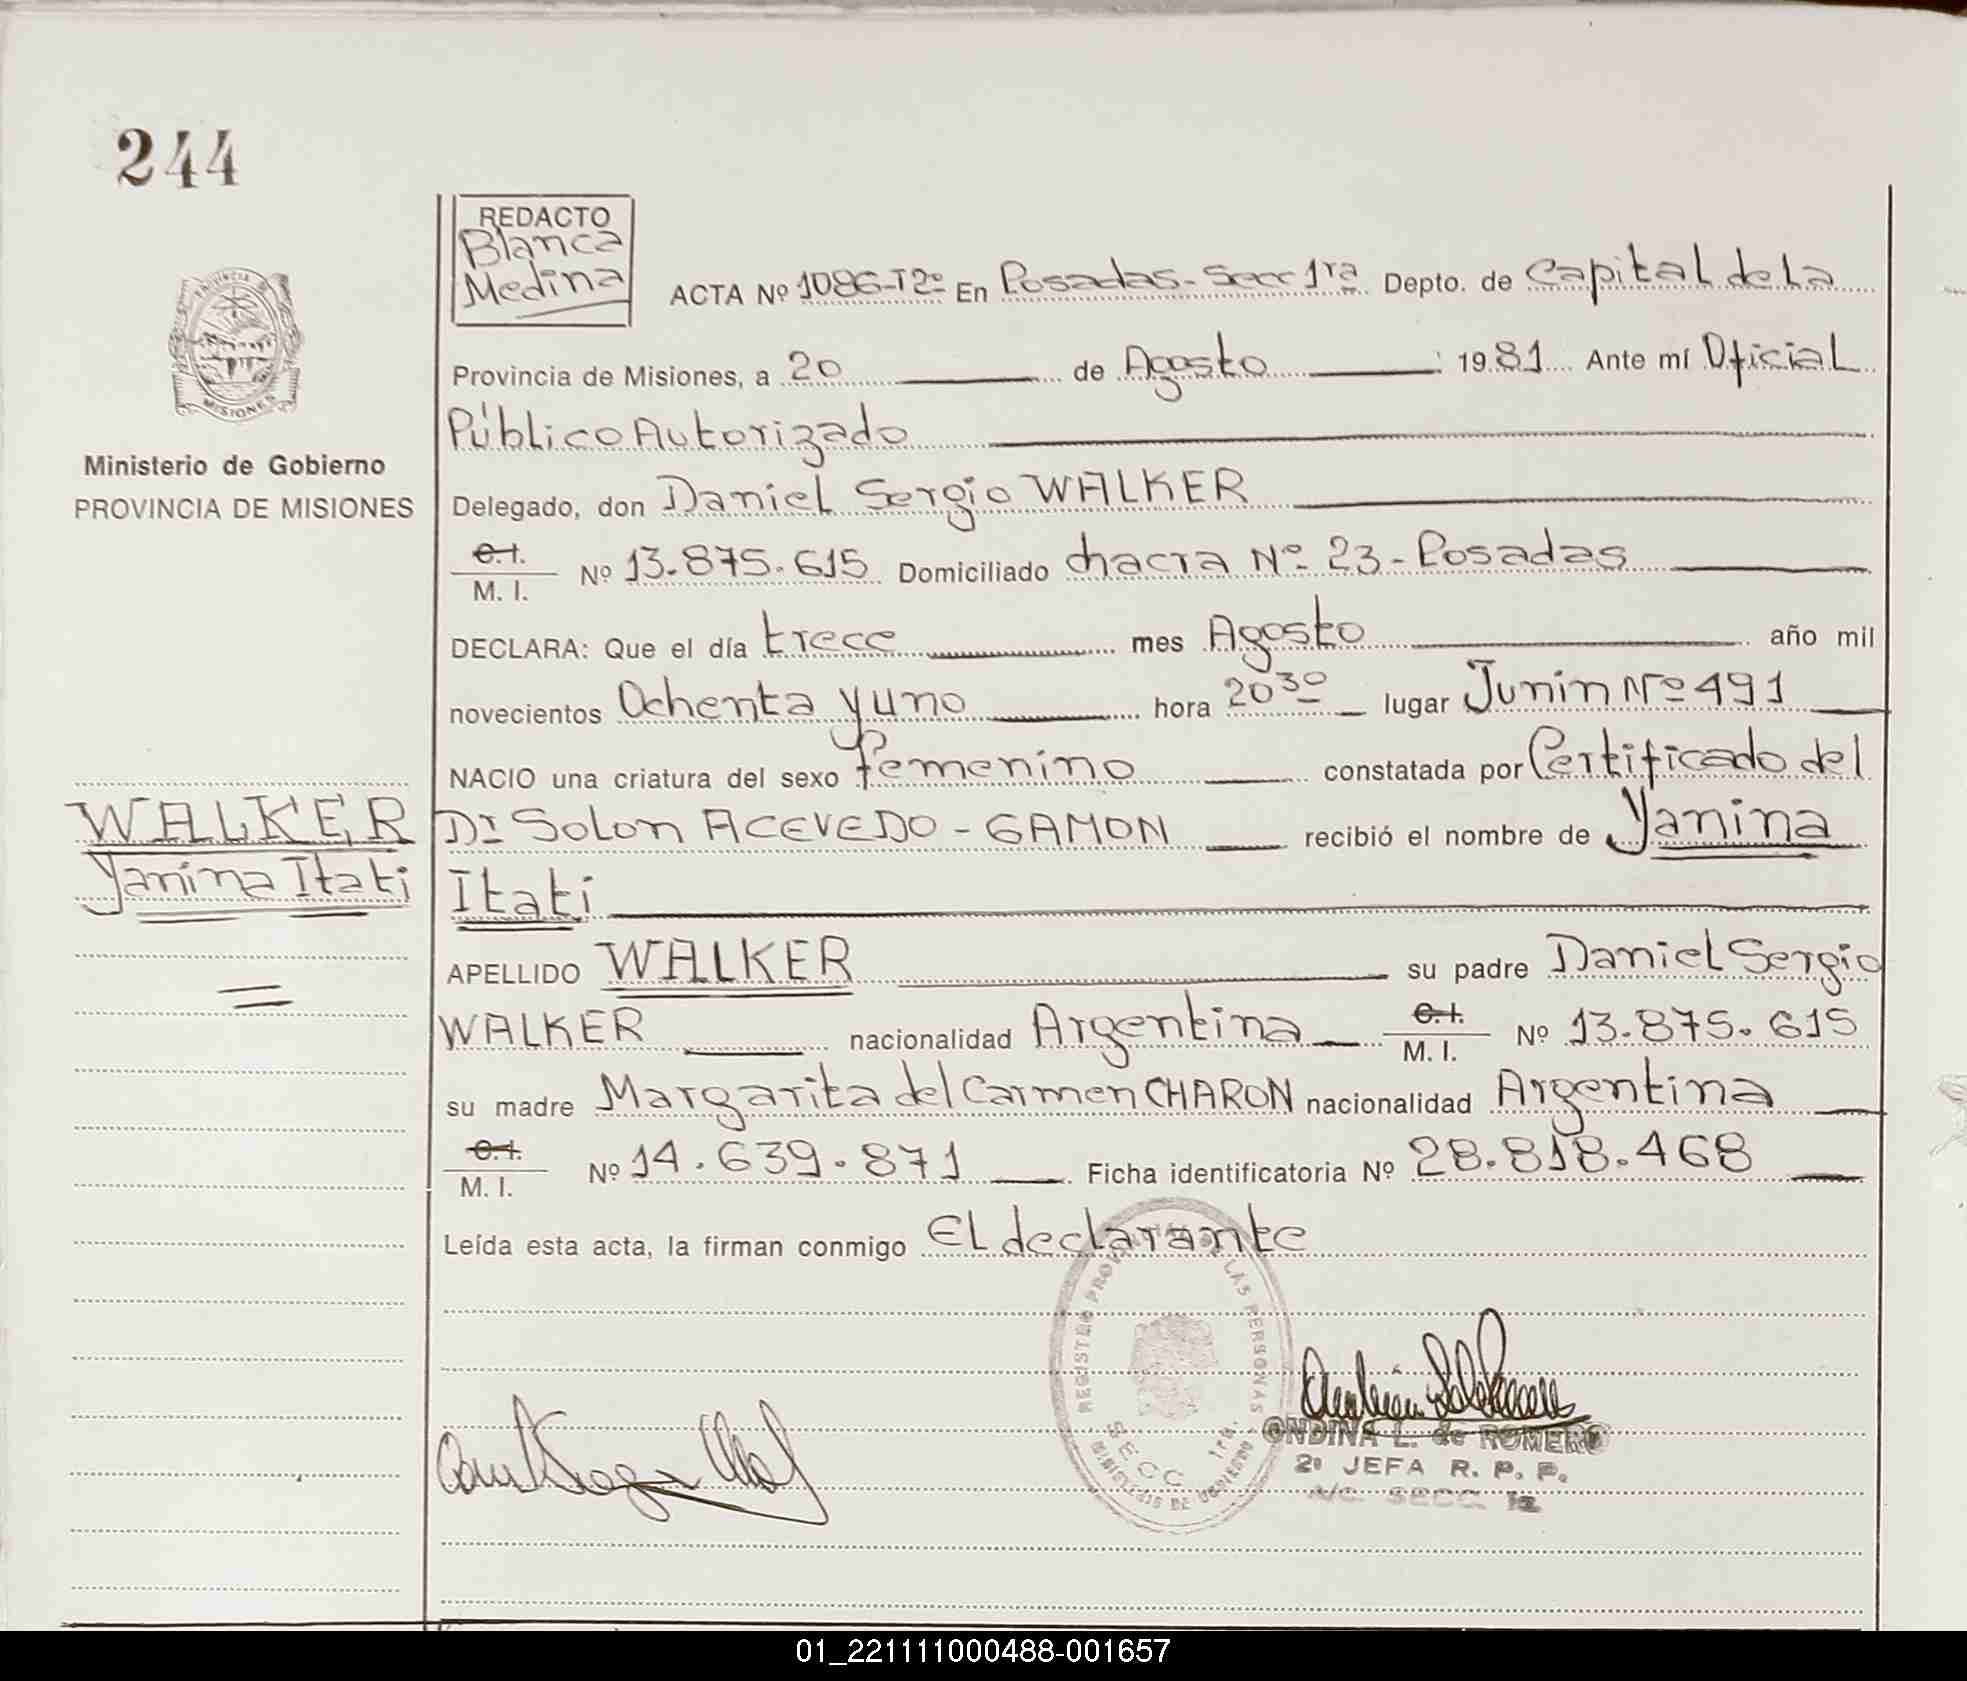 244
REDACTO
Blanca
Medina
ACTA Nº 1086-Tº2º En Posadas-Secc 1ra Depto. de Capital de La
PROVINCIA
MISIONES
Provincia de Misiones, a 20 de Agosto 1981 Ante mí Oficial
Público Autorizado
Ministerio de Gobierno
PROVINCIA DE MISIONES
Delegado, don Daniel Sergio WALKER
C.I.
M. I. Nº 13.875.615 Domiciliado chacra Nº 23-Posadas
DECLARA: Que el día trece mes Agosto año mil
novecientos Ochenta y uno hora 20 30 lugar Junin Nº 491
NACIO una criatura del sexo femenino constatada por Certificado del
WALKER
Yanina Itati
Dr Solon ACEVEDO - GAMON recibió el nombre de Yanina
Itati
APELLIDO WALKER su padre Daniel Sergio
WALKER nacionalidad Argentina C.I. M. I. Nº 13.875.615
su madre Margarita del Carmen CHARON nacionalidad Argentina
C.I.
M. I. Nº 14.639.871 Ficha identificatoria Nº 28.818.468
Leída esta acta, la firman conmigo El declarante
REGISTRO PROV LAS PERSONAS
SECC 1ra.
MINISTERIO DE GOBIERNO
ONDINA L. de ROMERO
2º JEFA R. P. P.
A/C. SECC. 1a
01_221111000488-001657